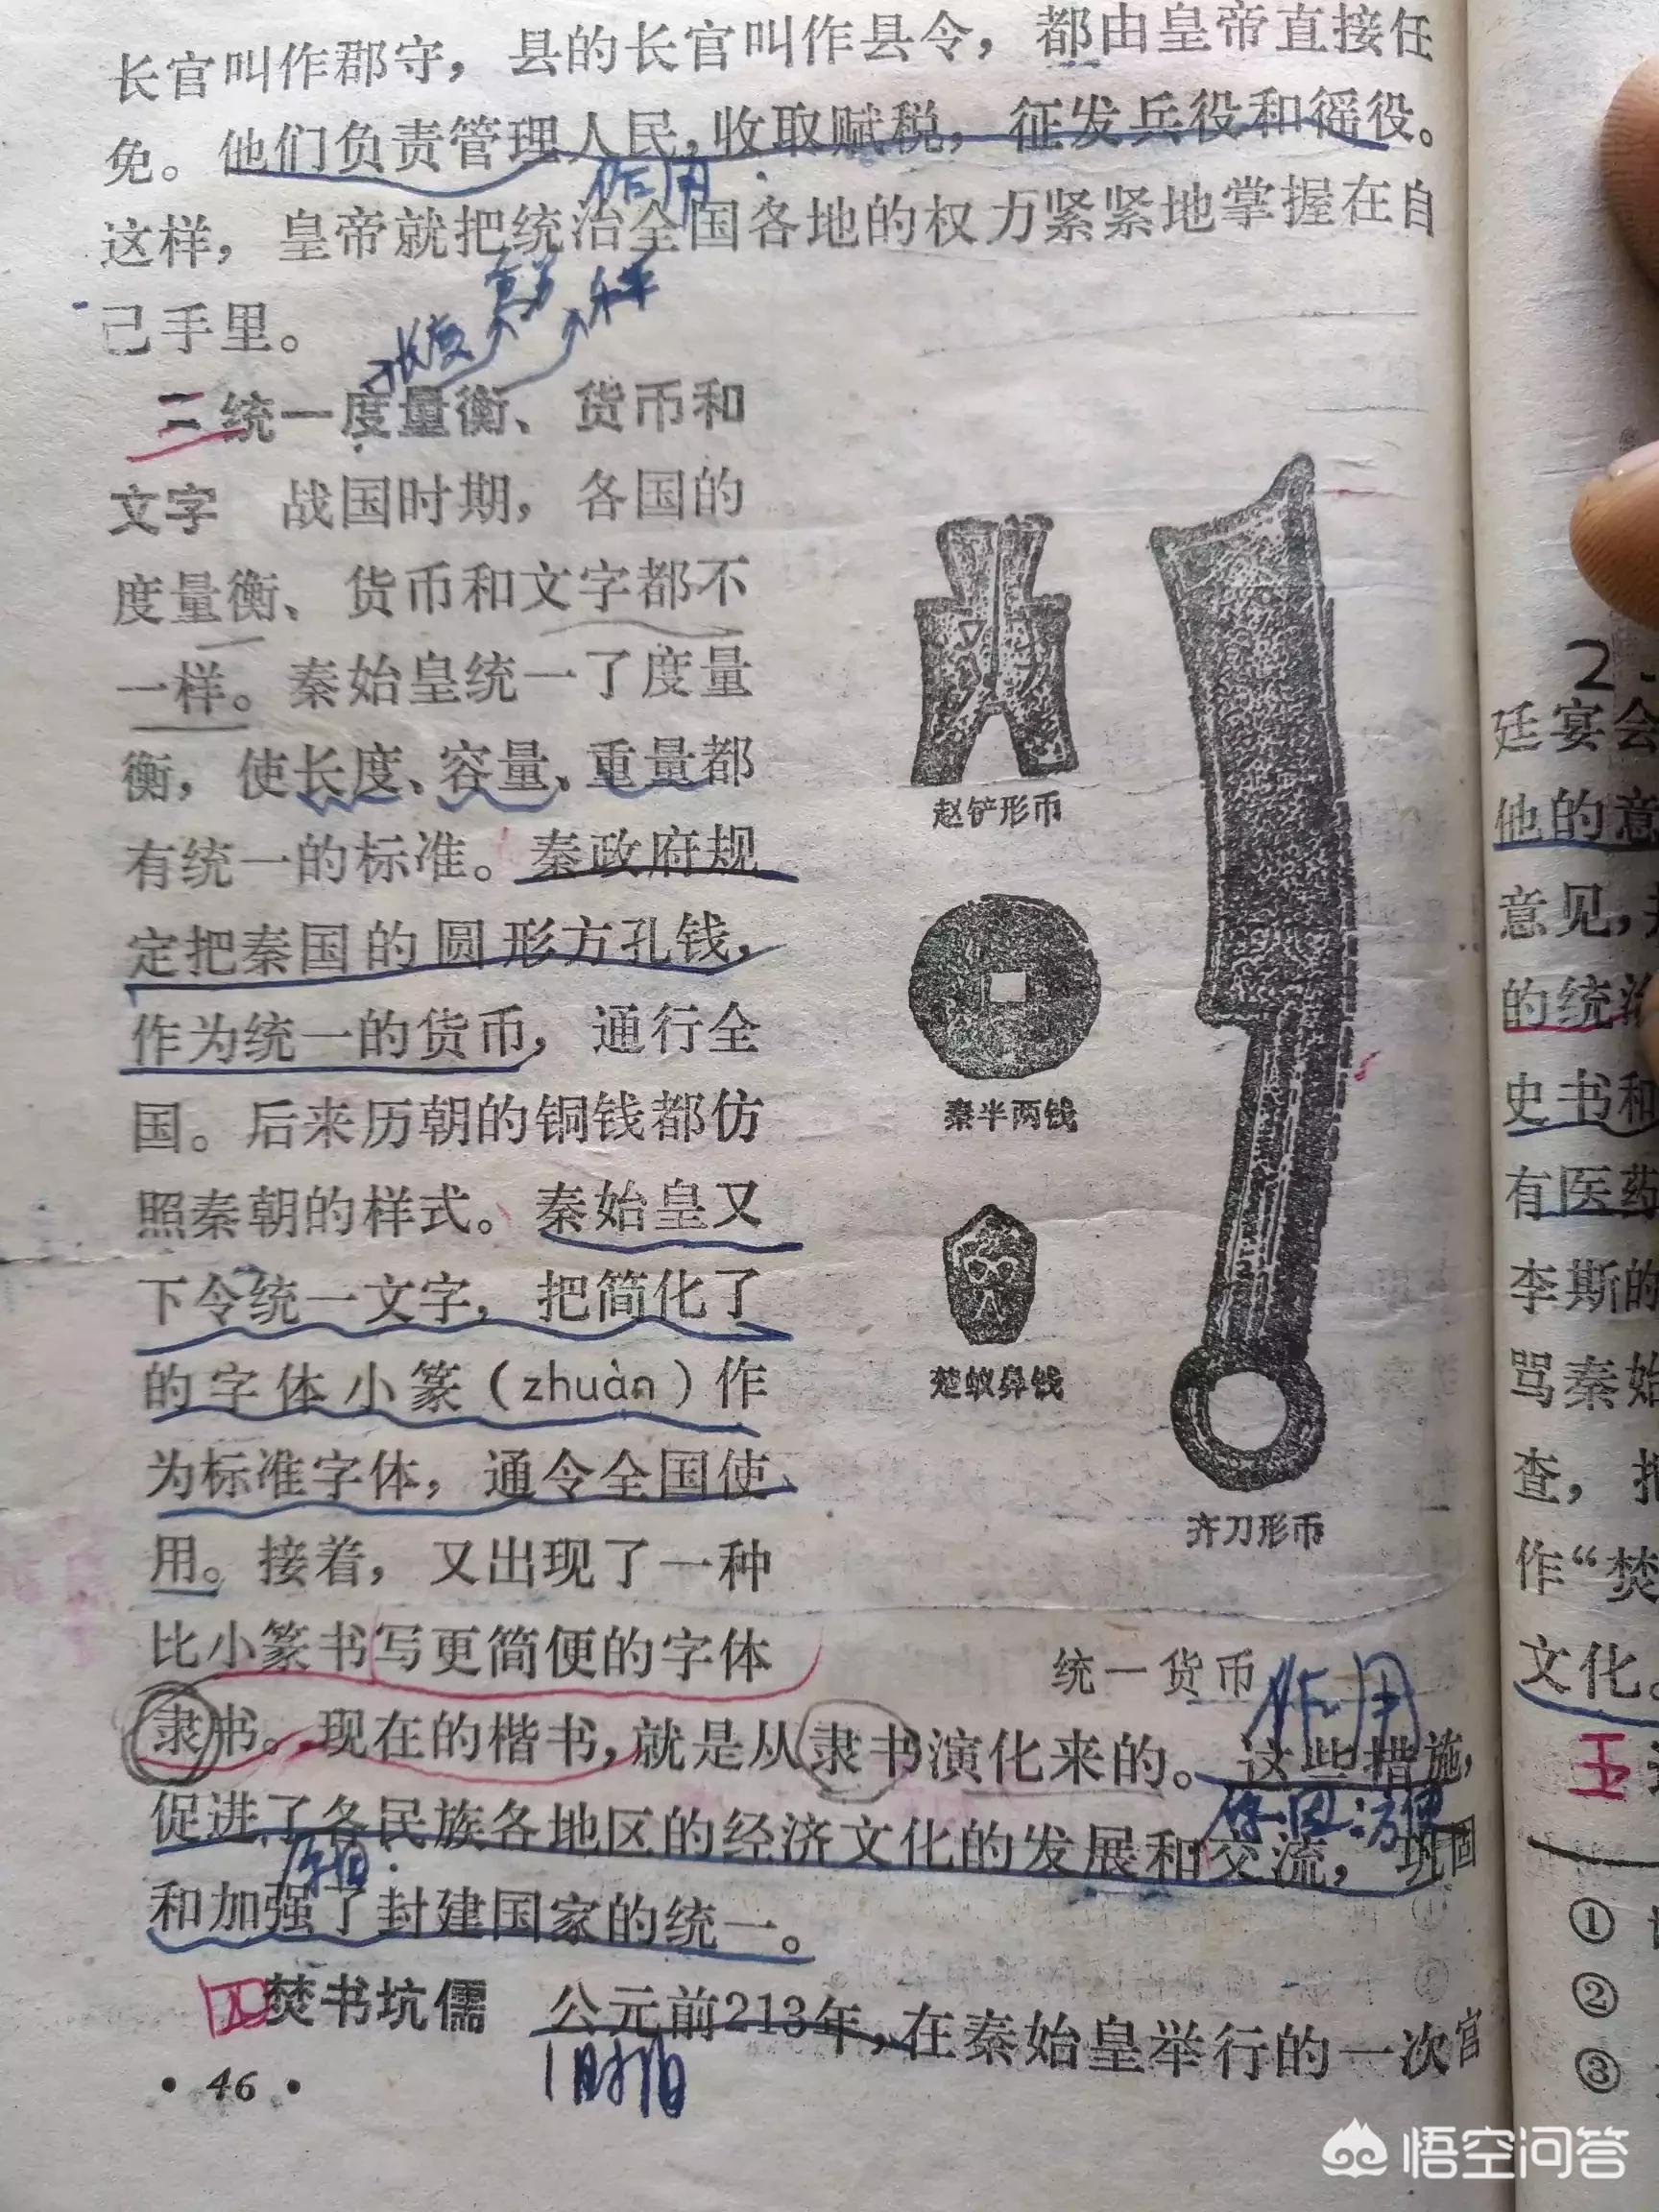 长官叫作郡守，县的长官叫作县令，都由皇帝直接任
免。他们负责管理人民，收取赋税，征发兵役和徭役。
作用
这样，皇帝就把统治全国各地的权力紧紧地掌握在自
己手里。
长度
三 统一度量衡、货币和
文字 战国时期，各国的
度量衡、货币和文字都不
一样。秦始皇统一了度量
衡，使长度、容量、重量都
有统一的标准。秦政府规
定把秦国的圆形方孔钱，
作为统一的货币，通行全
国。后来历朝的铜钱都仿
照秦朝的样式。秦始皇又
下令统一文字，把简化了
的字体小篆（zhuàn）作
为标准字体，通令全国使
用。接着，又出现了一种
比小篆书写更简便的字体
隶书。现在的楷书，就是从隶书演化来的。这些措施，
促进了各民族各地区的经济文化的发展和交流，巩固
和加强了封建国家的统一。
四 焚书坑儒 公元前213年，在秦始皇举行的一次官
时间
• 46 •
赵铲形币
秦半两钱
楚蚁鼻钱
齐刀形币
统一货币
作用
2.
廷宴会
他的意
意见，
的统治
史书和
有医药
李斯的
骂秦始
查，
作“焚
文化。
五
①
②
③
悟空问答